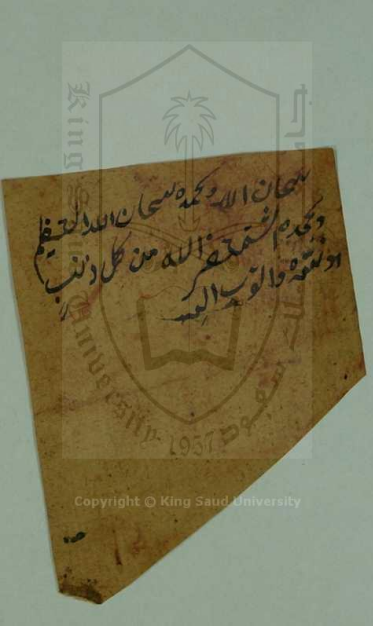 سبحان الله وبحمده سبحان الله العظيم
وبحمده استغفر الله من كل ذنب
واتوب اليه
King Saud University
1957
Copyright © King Saud University